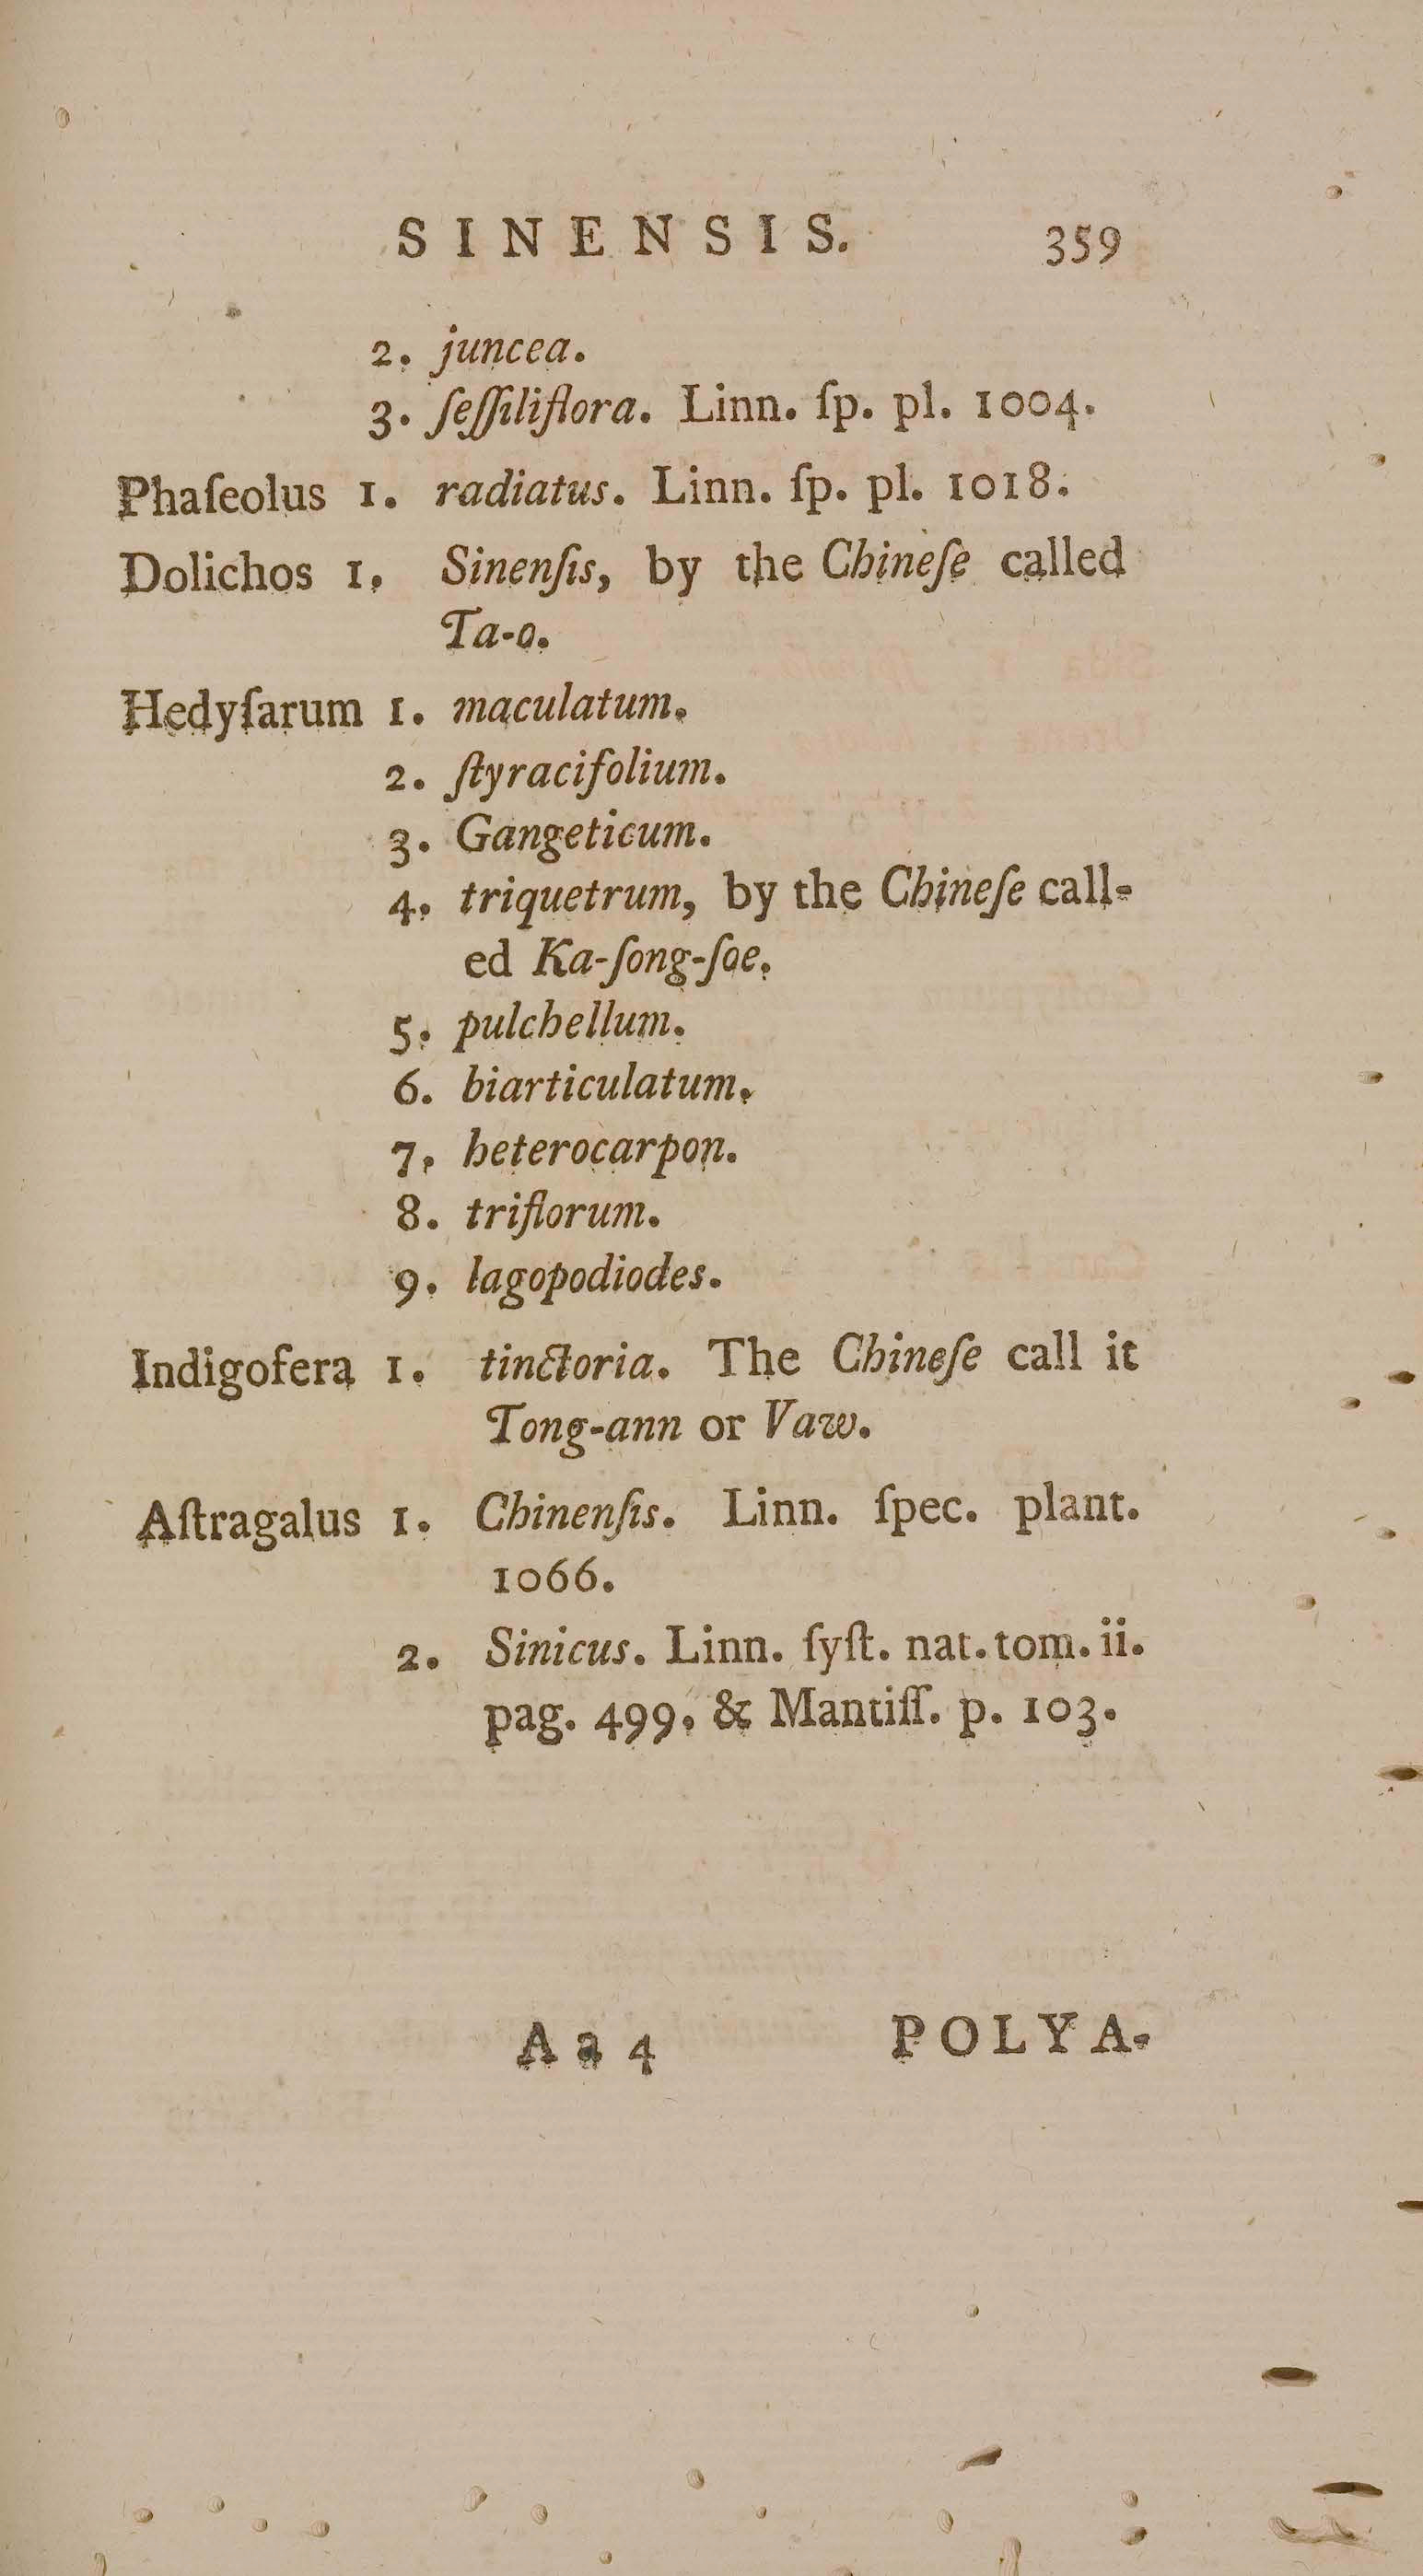 SINENSIS. 359
2. juncea.
3. ſeſſiliflora. Linn. ſp. pl. 1004.
Phaſeolus 1. radiatus. Linn. ſp. pl. 1018.
Dolichos 1. Sinenſis, by the Chineſe called
Ta-o.
Hedyſarum 1. maculatum.
2. ſtyracifolium.
3. Gangeticum.
4. triquetrum, by the Chineſe call-
ed Ka-ſong-ſoe.
5. pulchellum.
6. biarticulatum.
7. heterocarpon.
8. triflorum.
9. lagopodiodes.
Indigofera 1. tinctoria. The Chineſe call it
Tong-ann or Vaw.
Aſtragalus 1. Chinenſis. Linn. ſpec. plant.
1066.
2. Sinicus. Linn. ſyſt. nat. tom. ii.
pag. 499, & Mantiſſ. p. 103.
Aa 4 POLYA-